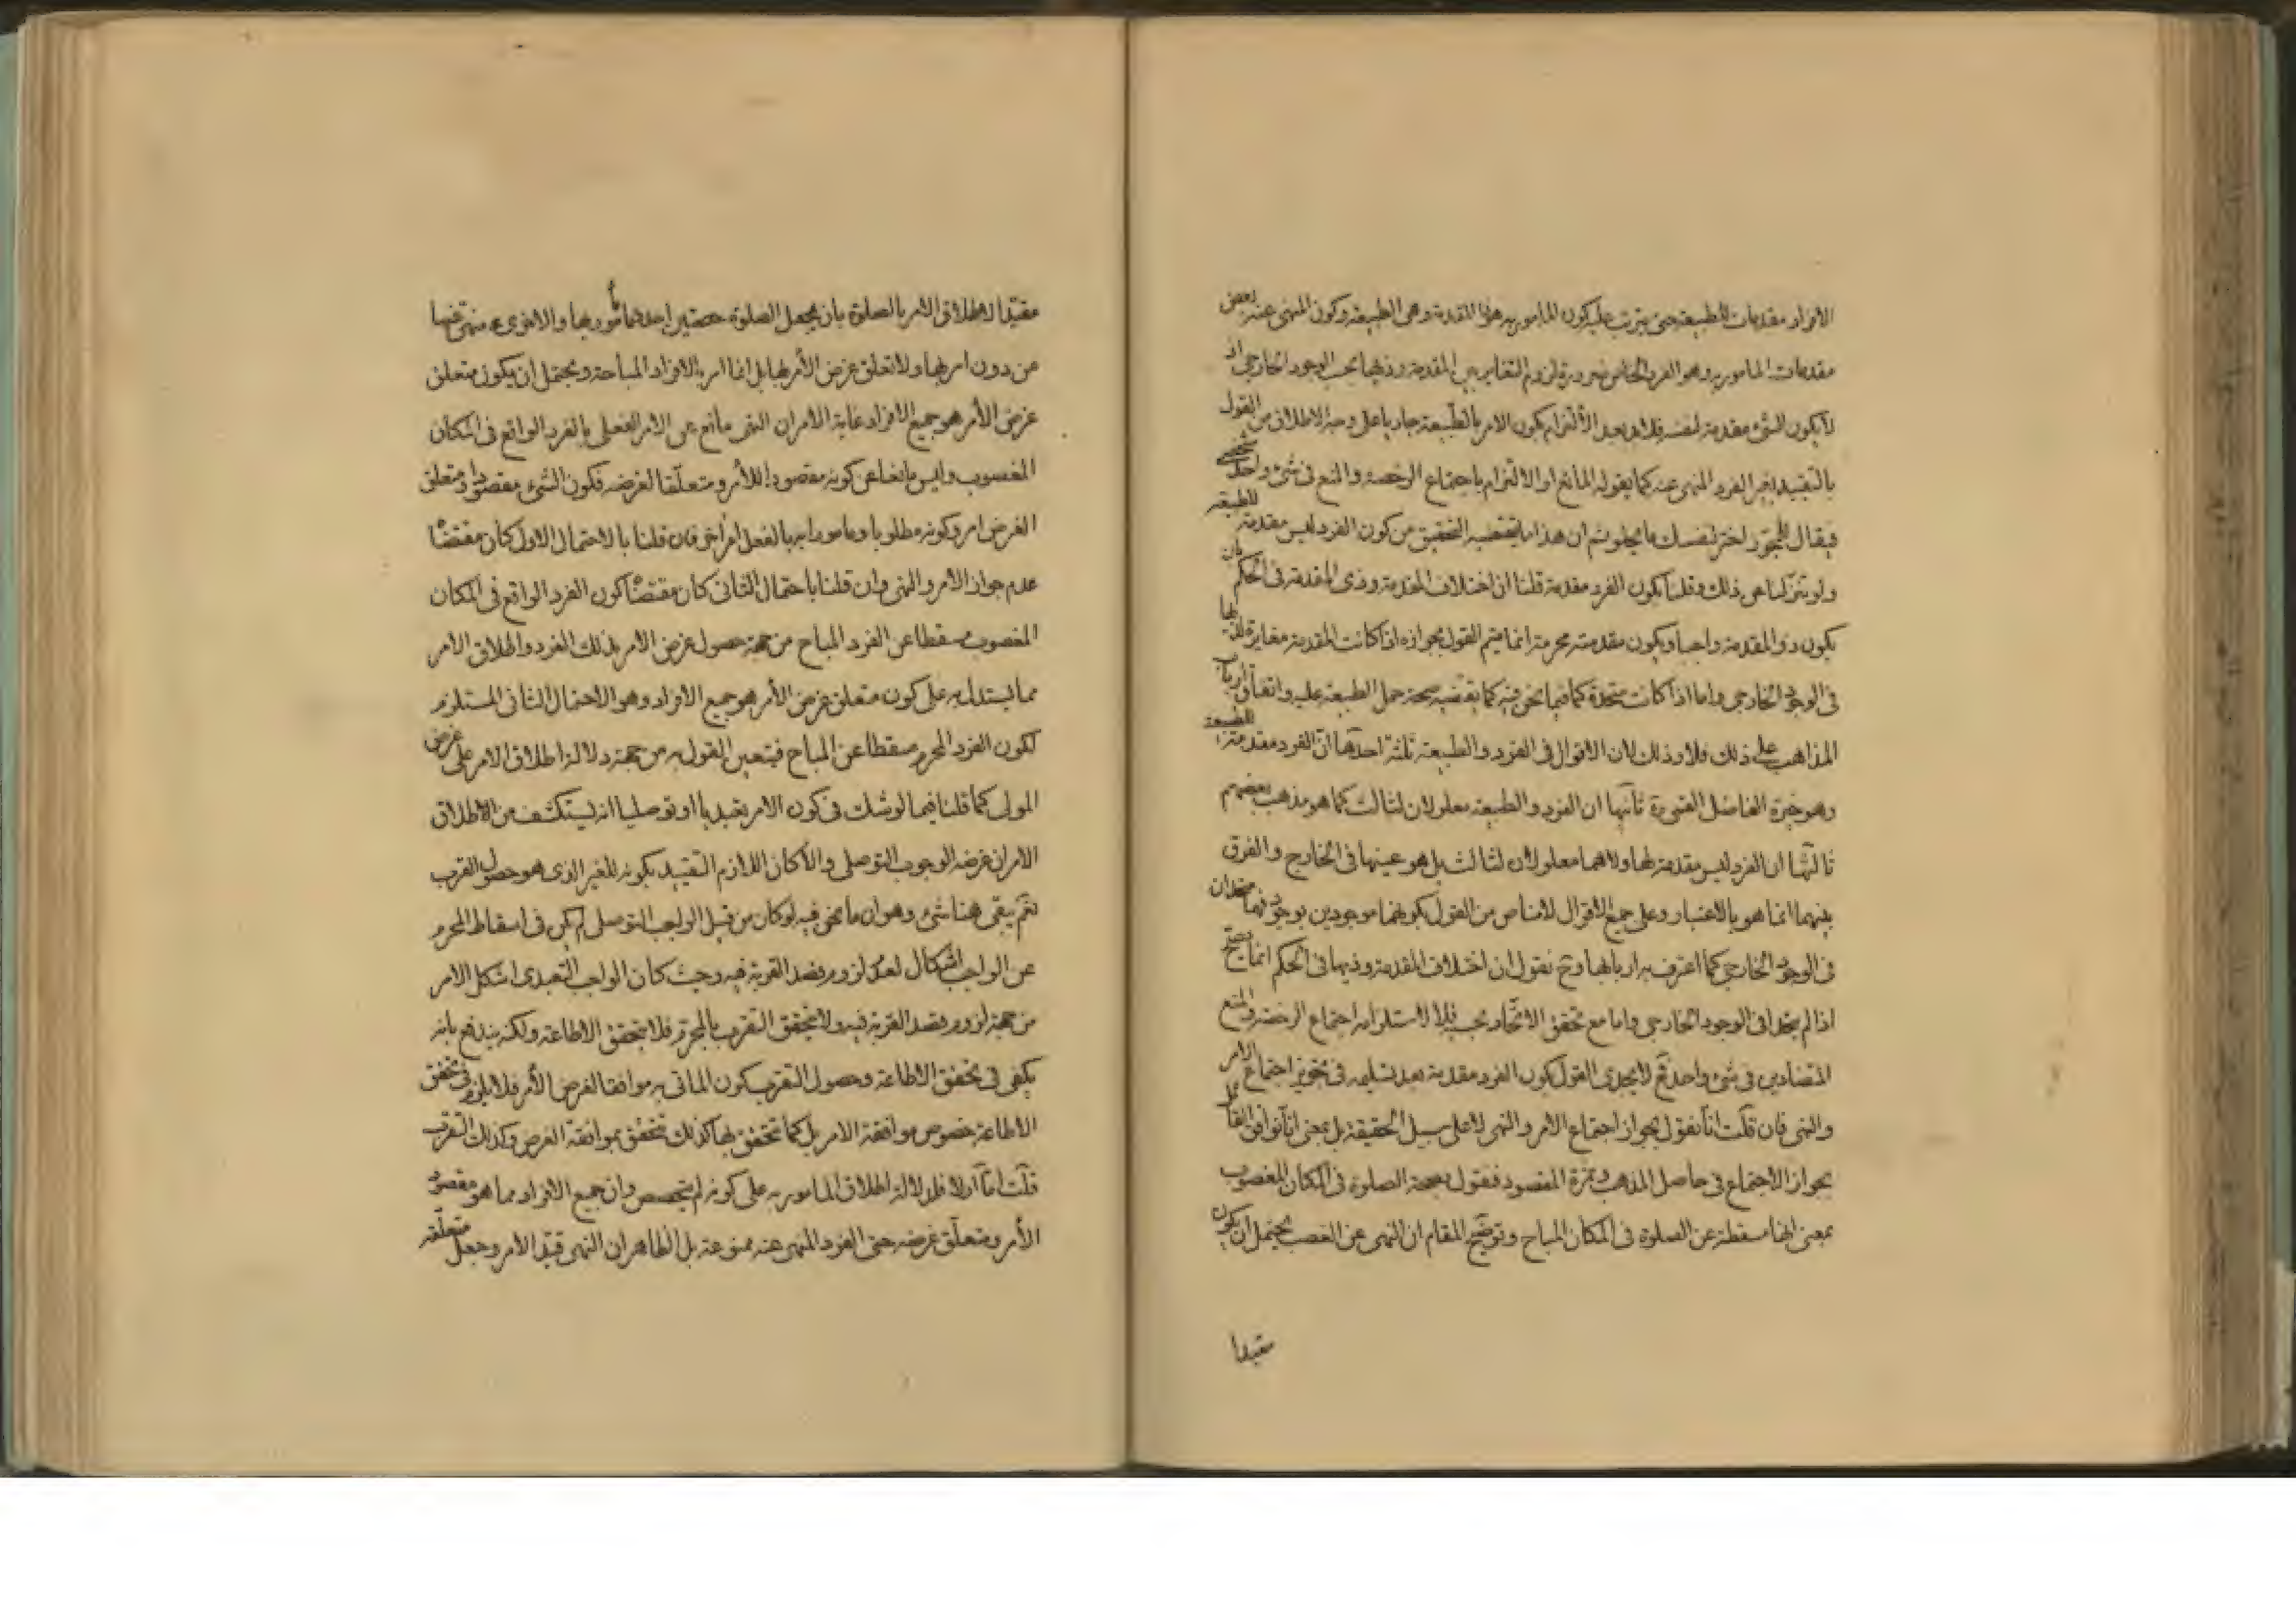 الافراد مقدمات للطبيعة حتى يترتب عليه كون المامور به هو ذا المقدمة وهى الطبيعة وكون المنهى عنه بعض
مقدمات المامور به وهو الفرد الخاص ضرورة لزوم التغاير بين المقدمة وذيها بحسب الوجود الخارجى اذ
لا يكون الشىء مقدمة لنفسه فلابد بعد الالتزام بكون الامر بالطبيعة جاريا على وجه الاطلاق من القول
بالتقييد بغير الفرد المنهى عنه كما يقوله المانع او الالتزام باجتماع الرخصة والمنع فى شىء واحد شخصى
فيقال للمجوز اختر لنفسك ما يحلو ثم ان هذا ما يقتضيه التحقيق من كون الفرد ليس مقدمة للطبيعة
ولو تنزلنا عن ذلك وقلنا بكون الفرد مقدمة قلنا ان اختلاف المقدمة وذى المقدمة فى الحكم بان
يكون ذو المقدمة واجبا ويكون مقدمته محرمة انما يتم القول بجوازه اذا كانت المقدمة مغايرة لذيها
فى الوجود الخارجى واما اذا كانت متحدة كما فيما نحن فيه كما يقتضيه صحة حمل الطبيعة عليه واتفاق ارباب
المذاهب على ذلك فلا وذلك لان الاقوال فى الفرد والطبيعة ثلثة احدها ان الفرد مقدمة للطبيعة
وهو خيرة الفاضل القمى ره ثانيها ان الفرد والطبيعة معلولان لثالث كما هو مذهب بعضهم
ثالثها ان الفرد ليس مقدمة لها ولا هما معلولان لثالث بل هو عينها فى الخارج والفرق
بينهما انما هو بالاعتبار وعلى جميع الاقوال لا مناص من القول بكونهما موجودين بوجود فهما متحدان
فى الوجود الخارجى كما اعترف به اربابها وح نقول ان اختلاف المقدمة وذيها فى الحكم انما يصح
اذا لم يتحدا فى الوجود الخارجى واما مع تحقق الاتحاد بحسبه فلا لاستلزامه اجتماع الرخصة والمنع
المتضادين فى شىء واحد فح لا يجدى القول بكون الفرد مقدمة بعد تسليمه فى تجويز اجتماع الامر
والنهى فان قلت انا نقول بجواز اجتماع الامر والنهى لا على سبيل الحقيقة بل بمعنى انا نوافق القائل
بجواز الاجتماع فى حاصل المذهب وثمرة المقصود فنقول بصحة الصلوة فى المكان المغصوب
بمعنى انها مسقطة عن الصلوة فى المكان المباح وتوضيح المقام ان النهى عن الغصب يحتمل ان يكون
مقيدا
مقيدا لاطلاق الامر بالصلوة بان يجعل الصلوة حصتين احدهما مأمور بها والاخرى منهى عنها
من دون امر بها ولا تعلق غرض الآمر بها بل انما امر بالافراد المباحة ويحتمل ان يكون متعلق
غرض الآمر هو جميع الافراد غاية الامر ان النهى مانع عن الامر الفعلى بالفرد الواقع فى المكان
المغصوب وليس مانعا عن كونه مقصودا للآمر ومتعلقا لغرضه فكون الشىء مقصودا ومتعلق
الغرض امر وكونه مطلوبا ومامورا به بالفعل امر اخر فان قلنا بالاحتمال الاول كان مقتضا
عدم جواز الامر والنهى وان قلنا باحتمال الثانى كان مقتضا كون الفرد الواقع فى المكان
المغصوب مسقطا عن الفرد المباح من جهة حصول غرض الامر بذلك الفرد واطلاق الامر
مما يستدل به على كون متعلق غرض الآمر هو جميع الافراد وهو الاحتمال الثانى المستلزم
لكون الفرد المحرم مسقطا عن المباح فيتعين القول به من جهة دلالة اطلاق الامر على غرض
المولى كما قلنا فيما لو شك فى كون الامر تعبديا او توصليا انه يستكشف من الاطلاق
الامر ان غرضه الوجوب التوصلى والا كان اللازم التقييد بكونه للغير الذى هو حصول القرب
نعم يبقى هنا شىء وهو ان ما نحن فيه لو كان من قبيل الواجب التوصلى لم يكن فى اسقاط المحرم
عن الواجب اشكال لعدم لزوم قصد القربة فيه وحيث كان الواجب التعبدى اشكل الامر
من جهة لزوم قصد القربة فيه ولا يتحقق التقرب بالمحرم فلا يتحقق الاطاعة ولكنه يندفع بانه
يكفى فى تحقق الاطاعة وحصول التقرب كون الماتى به موافقا لغرض الآمر فلا يلزم فى تحقق
الاطاعة خصوص موافقة الامر بل كما تتحقق بها كذلك تتحقق بموافقة الغرض وكذلك التقرب
قلت اما اولا فلدلالة اطلاق المامور به على كونه لم يتخصص وان جميع الافراد مما هو مقصود
الآمر ومتعلق غرضه حتى الفرد المنهى عنه ممنوعة بل الظاهر ان النهى قيد الامر وجعل متعلقه